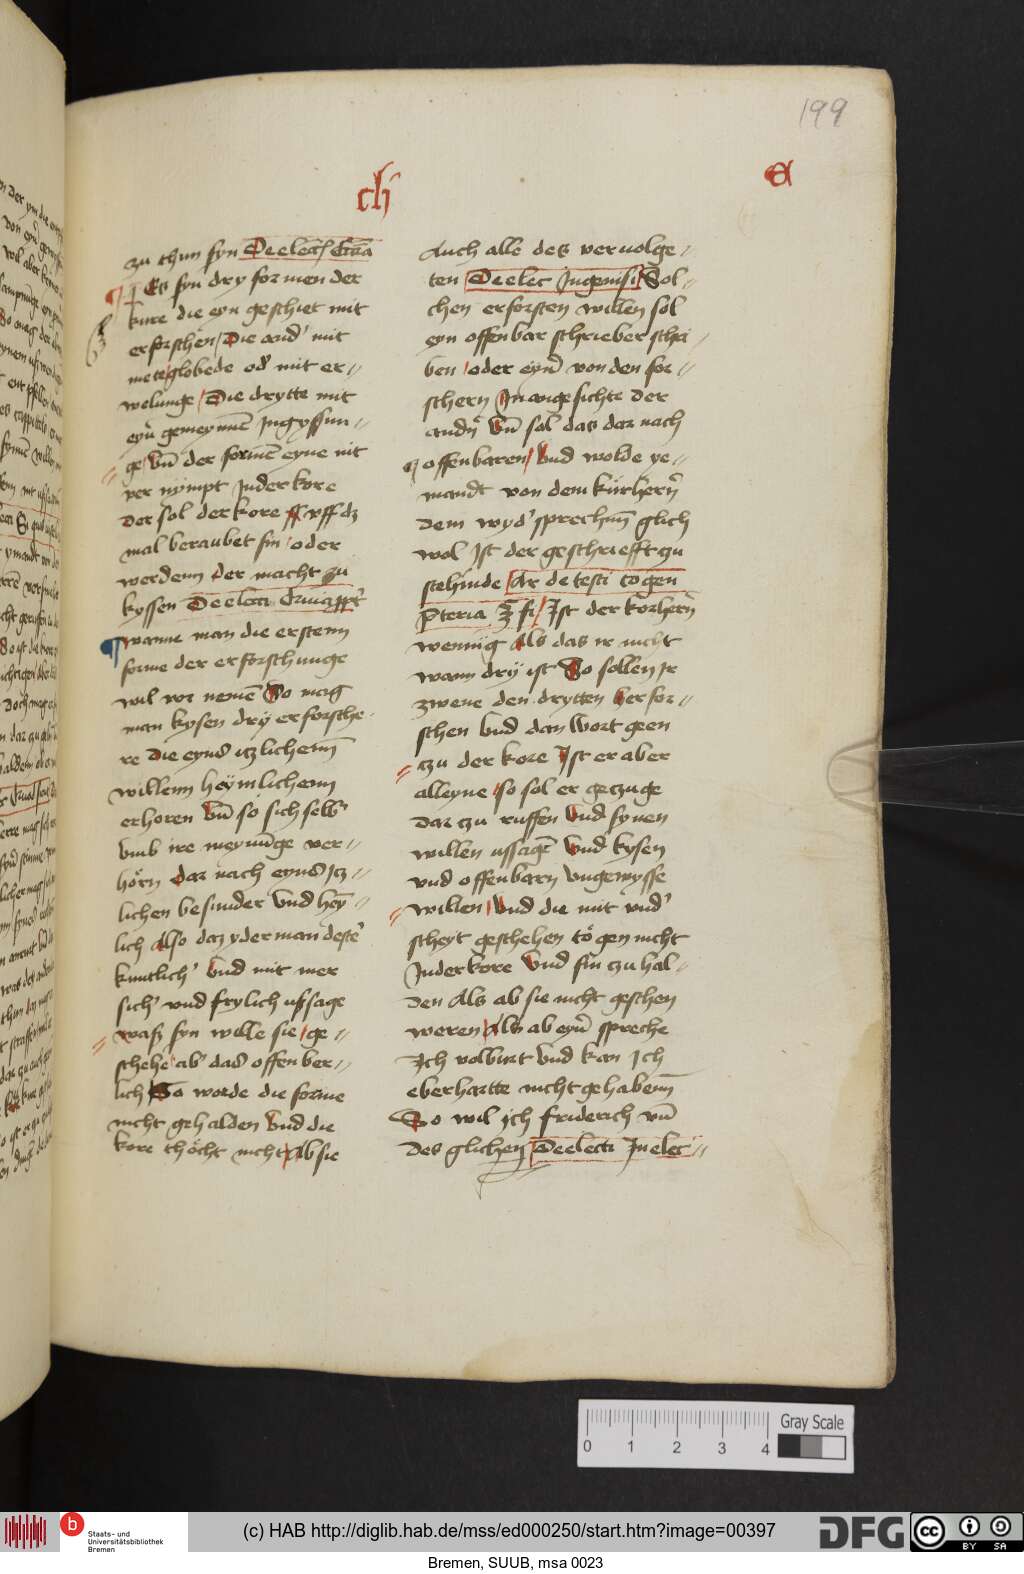 199
cli
a
zu thun syn De elect Extra
Es syn dry formen der
kure die eyn geschiet mit
erforschen Die and' mit
mete globede od' mit er-
welunge Die drytte mit
eyn gemeynen Ingyssun-
ge Vnd der formen eyne nit
ver nympt Inder kore
Der sol der kore vff dz
mal beraubet sin oder
werdenn der macht zu
kyssen De electi
wanne man die erstenn
forme der erforschunge
wil vor nemen So mag
man kysen dry erforsche
re die eyns itzlichenn
willenn heymlichenn
erhoren Vnd so sich selb'
vmb ire meynunge ver-
hörn Dar nach eyns Itz-
lichen besunder Vnd hey-
lich Also daz yderman deste'
kuntlich' Vnd mit mer
sich' vnd frylich vssage
wasz syn wille sie ge-
schehe ab' das offenber-
lich So worde die forme
nicht gehalden Vnd die
kore thöcht nicht Ab sie
Auch alle des vervolge-
ten De elec Ingenisi Sol-
chen erforsten willen sol
eyn offenbar schrieber schri
ben oder eyner von den for-
schern In angesichte der
andn Vnd sol das dar nach
offenbaren Vnd wolde ye-
mandt von dem kürhern
dem wyd'sprechenn glich
wol Ist der geschriefft zu
stehinde Ar de testi cogen
Preteria § fi Ist der korhern
wennig Als das ir nicht
wann dry ist So sollen Ir
zwene den drytten her for-
schen Vnd dan Wort geen
czu der kore Ist er aber
alleyne so sol er geczuge
Dar czu ruffen Vnd synen
willen ussagen Vnd kysen
vnd offenbarn Vngewysse
willen Vnd die mit vnd'
scheyt geschehen tögen nicht
Inder kore Vnd sin czu hal-
den Als ab sie nicht geschen
weren Als ab eyner spreche
Ich volburt Vnd kan Ich
eberhartte nicht gehabenn
So wil ich friderich vnd
des glichen De electi In elec-
Gray Scale
0 1 2 3 4
Staats- und
Universitätsbibliothek
Bremen
(c) HAB http://diglib.hab.de/mss/ed000250/start.htm?image=00397
DFG
cc BY SA
Bremen, SUUB, msa 0023